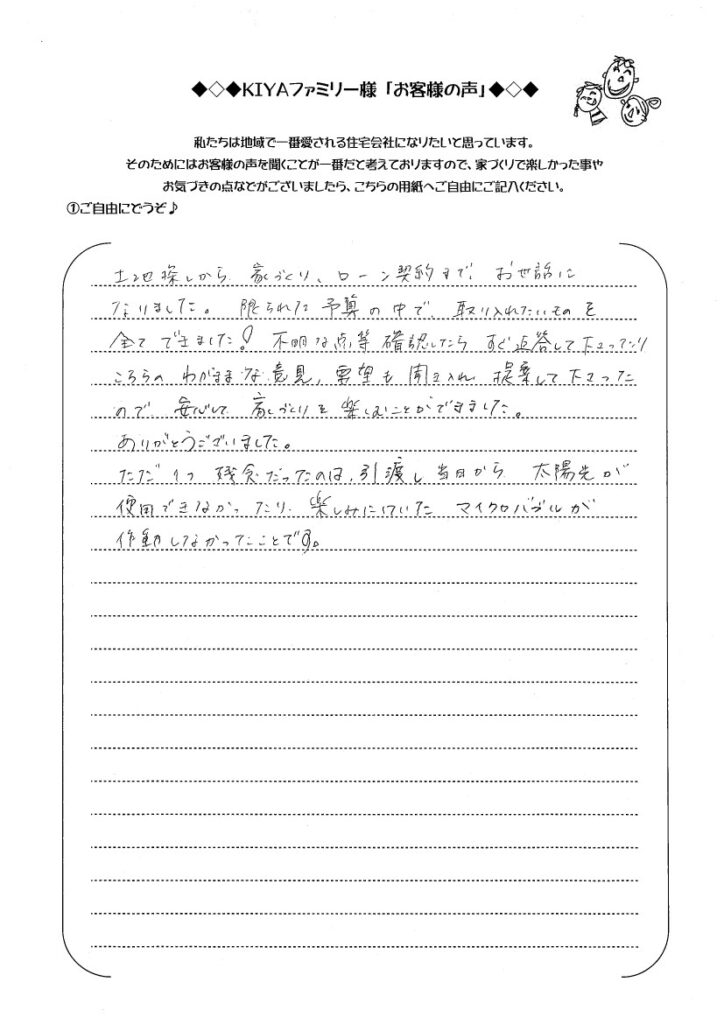 ◆◇◆KIYAファミリー様「お客様の声」◆◇◆
私たちは地域で一番愛される住宅会社になりたいと思っています。
そのためにはお客様の声を聞くことが一番だと考えておりますので、家づくりで楽しかった事や
お気づきの点などがございましたら、こちらの用紙へご自由にご記入ください。
①ご自由にどうぞ♪
土地探しから、家づくり、ローン契約まで、お世話に
なりました。限られた予算の中で、取り入れたいものを
全てできました！不明な点等確認したらすぐ返答して下さったり
こちらのわがままな意見、要望も聞き入れ、提案して下さった
ので安心して家づくりを楽しむことができました。
ありがとうございました。
ただ1つ残念だったのは、引渡し当日から太陽光が
使用できなかったり、楽しみにしていたマイクロバブルが
作動しなかったことです。